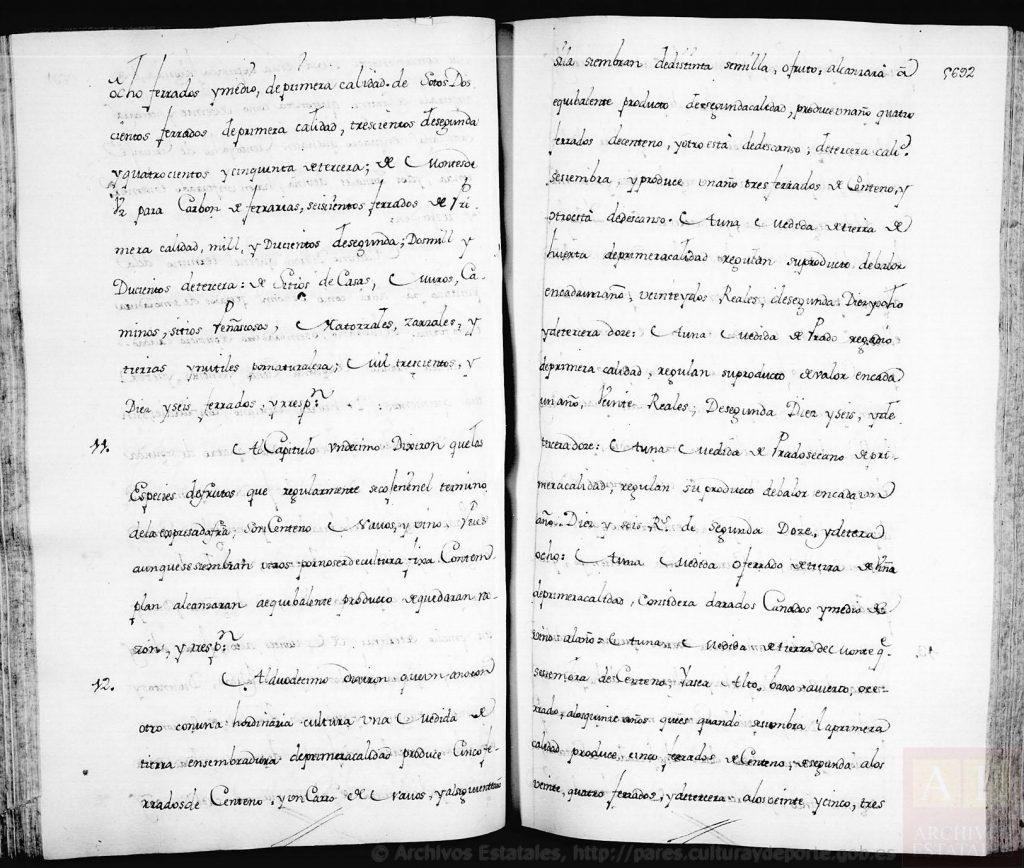 ocho ferrados y medio, de primera calidad. de Sotos Dos
cientos ferrados de primera calidad, trescientos de segunda
y quatrocientos y cinquenta de tercera; de Montes de
para Carbon de ferrarias, seiscientos ferrados de Pri-
mera calidad, mill, y Ducientos de segunda; Dosmill y
Ducientos de tercera: de Sitios de Casas, Muros, Ca-
minos, sitios Peñascosos, Matorrales, zarzales, y
tierras ynutiles por naturaleza; Mil trescientos, y
Diez y seis ferrados, y resp.n
11.
Al Capitulo undecimo Dixeron que las
Especies de frutos que regularmente se cojen en el termino
de la expresada fra; son Centeno Navos, y vino, Pues
aunque se siembran otros por no ser de cultura fixa Contem-
plan alcanzaran a equibalente producto de quedaran ra-
zon, y resp.n
12.
Al duodecimo Dixeron que un año con
otro con una hordinaria cultura una Medida de
tierra en sembradura de primera calidad produce Cinco fe-
rrados de Centeno, y un Carro de Navos, y
5692
siembran de distinta semilla, o fruto, alcanzará â
equibalente producto de segunda calidad, produce un año quatro
ferrados de centeno, y otro está de descanso; de tercera cali.d
se siembra, y produce un año tres ferrados de Centeno, y
otro está de descanso. A una Medida de tierra de
huerta de primera calidad regulan su producto de balor
en cada un año, veinte y dos Reales, de segunda Diez y ocho
y de tercera doze: A una Medida de Prado regadio
de primera calidad, regulan su producto de valor en cada
un año, Veinte Reales; De segunda Diez y seis, y de
tercera doze: A una Medida de Prado secano de pri-
mera calidad, regulan su producto de balor en cada un
año. Diez y seis R.s de segunda Doze, y de terzera
ocho: A una Medida o ferrado de tierra de Viña
de primera calidad, Considera dara dos Cañados y medio de
vino al año = A tuna Medida de tierra de Monte q.e
se siembra de Centeno, Alto, baxo avierto, o ce-
rrado, a los quinze años que es quando se siembra la primera
calidad produce, cinco ferrados de Centeno, de segunda a los
veinte, quatro ferrados, y de tercera a los veinte y cinco, tres
© Archivos Estatales, http://pares.culturaydeporte.gob.es
ARCHIVOS
ESTATALES